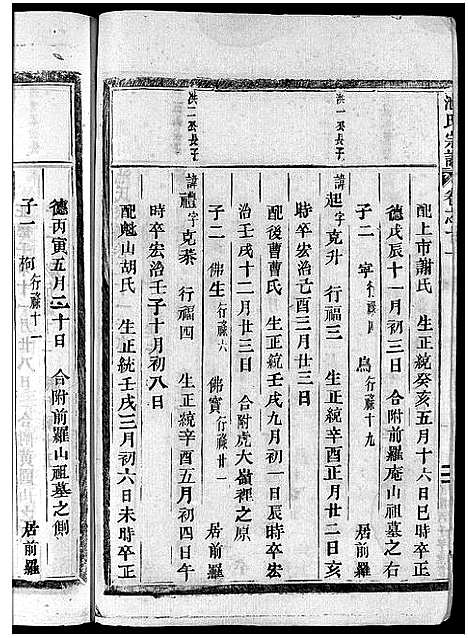 氏宗譜
配上市謝氏 生正統癸亥五月十六日巳時卒正
德戊辰十一月初三日 合附前羅庵山祖墓之右
子二 寧行祿四 烏行祿十九 居前羅
洪一公長子
諱起字克升 行福三 生正統辛酉正月廿二日亥
時卒宏治己酉三月廿三日
配後曹曹氏 生正統壬戌九月初一日辰時卒宏
治壬戌十二月廿三日 合附虎大嶺裡之原
子二 佛生行祿六 佛寶行祿廿一 居前羅
洪二公長子
諱禮字克恭 行福四 生正統辛酉五月初四日午
時卒宏治壬子十月初八日
配魁山胡氏 生正統壬戌三月初六日未時卒正
德丙寅五月二十日 合附前羅山祖墓之側
子一 栒行祿十一 居前羅